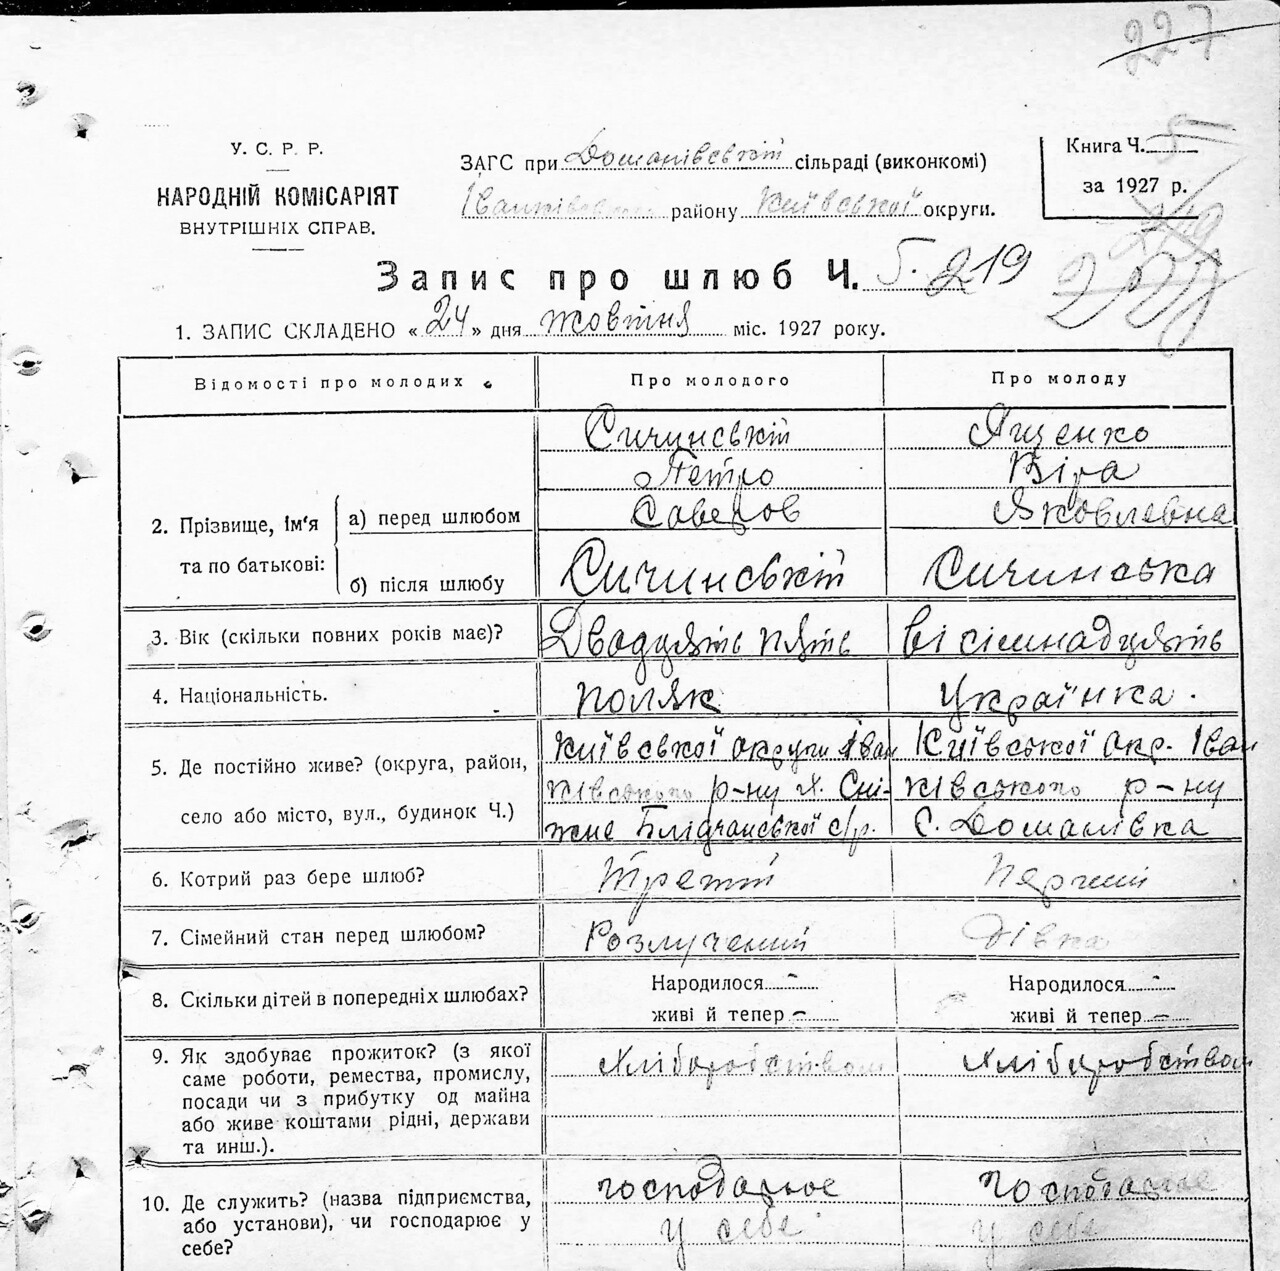 227
У. С. Р. Р.
НАРОДНІЙ КОМІСАРІЯТ
ВНУТРІШНІХ СПРАВ.
ЗАГС при Доманівській сільраді (виконкомі)
Іванківськ. району Київської округи.
Книга Ч.
за 1927 р.
Запис про шлюб Ч. 5. 219
1. ЗАПИС СКЛАДЕНО «24» дня жовтня міс. 1927 року.
Відомості про молодих
Про молодого
Про молоду
2. Прізвище, ім'я та по батькові:
а) перед шлюбом
Сичинській
Петро
Саверов
Ященко
Віра
Яковлевна
б) після шлюбу
Сичинській
Сичинська
3. Вік (скільки повних років має)?
Двадцять пять
вісімнадцять
4. Національність.
поляк
українка.
5. Де постійно живе? (округа, район,
село або місто, вул., будинок Ч.)
Київської округи Іван
ківського р-ну х. Сні-
жне Блідчанської с/р.
Київської окр. Іван
ківського р-ну
С. Доманівка
6. Котрий раз бере шлюб?
Третій
Перший
7. Сімейний стан перед шлюбом?
Розлучений
дівка
8. Скільки дітей в попередніх шлюбах?
Народилося -
живі й тепер -
Народилося -
живі й тепер -
9. Як здобуває прожиток? (з якої
саме роботи, ремества, промислу,
посади чи з прибутку од майна
або живе коштами рідні, держави
та инш.).
Хліборобством
Хліборобством
10. Де служить? (назва підприємства,
або установи), чи господарює у
себе?
господарює
у себе
господарює
у себе